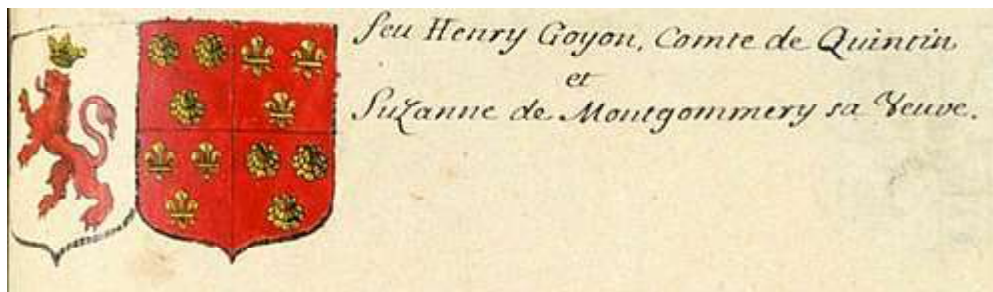 feu Henry Goyon, Comte de Quintin
et
Suzanne de Montgommery sa Veuve.